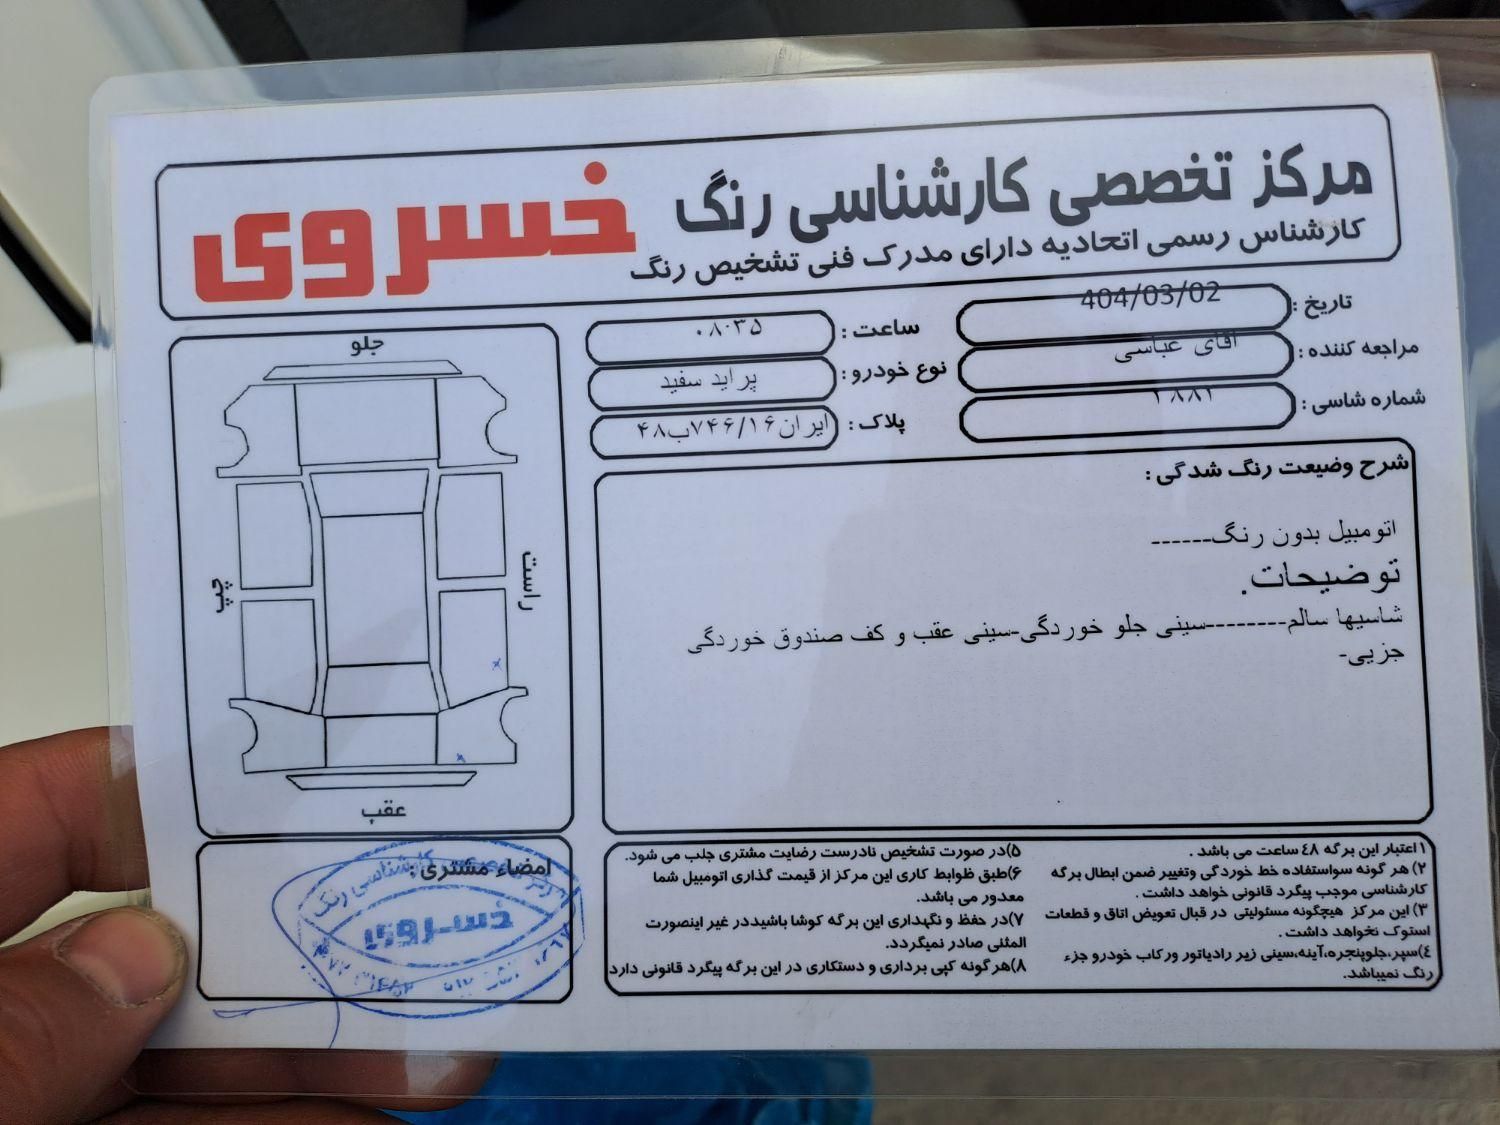 مرکز تخصصی کارشناسی رنگ خسروی
کارشناس رسمی اتحادیه دارای مدرک فنی تشخیص رنگ
تاریخ : 404/03/02
ساعت : ۰۸:۳۵
مراجعه کننده : اقای عباسی
نوع خودرو : پراید سفید
شماره شاسی :
پلاک : ایران۷۴۶/۱۶ب۴۸
جلو
راست
چپ
عقب
شرح وضیعت رنگ شدگی :
اتومبیل بدون رنگ------
توضیحات.
شاسیها سالم--------سینی جلو خوردگی-سینی عقب و کف صندوق خوردگی
جزیی-
امضاء مشتری :
کارشناسی رنگ
خسروی
۱)اعتبار این برگه ٤٨ ساعت می باشد .
۲)هر گونه سواستفاده خط خوردگی وتغییر ضمن ابطال برگه
کارشناسی موجب پیگرد قانونی خواهد داشت .
۳) این مرکز هیچگونه مسئولیتی در قبال تعویض اتاق و قطعات
استوک نخواهد داشت .
٤)سپر،جلوپنجره،آینه،سینی زیر رادیاتور ورکاب خودرو جزء
رنگ نمیباشد.
۵)در صورت تشخیص نادرست رضایت مشتری جلب می شود.
۶)طبق ظوابط کاری این مرکز از قیمت گذاری اتومبیل شما
معدور می باشد.
۷)در حفظ و نگهداری این برگه کوشا باشیددر غیر اینصورت
المثنی صادر نمیگردد.
۸)هرگونه کپی برداری و دستکاری در این برگه پیگرد قانونی دارد